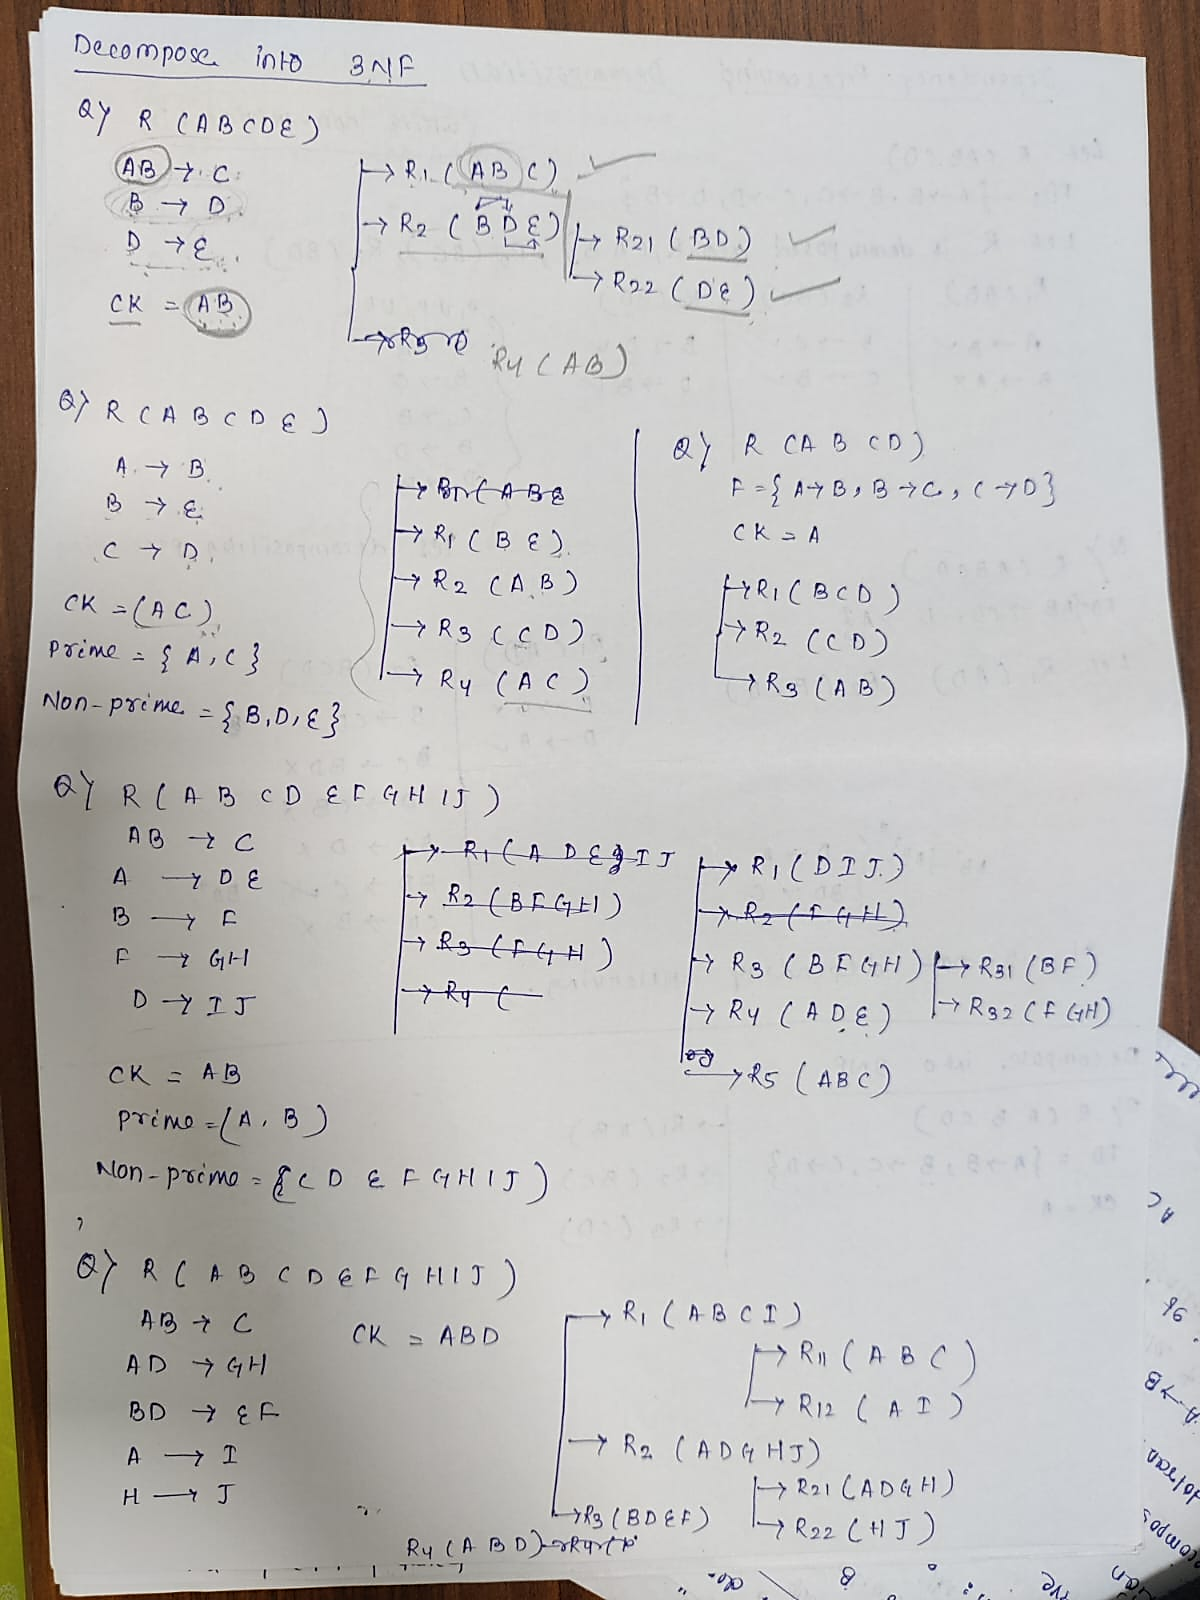 Decompose into 3NF
Q) R (ABCDE)
AB → C
B → D
D → E
CK = AB
→ R1 (ABC)
→ R2 (BDE)
→ R21 (BD)
→ R22 (DE)
→ R3
R4 (AB)
Q) R (A B C D E)
A → B
B → E
C → D
CK = (AC)
Prime = {A, C}
Non-prime = {B, D, E}
→ R1 (ABE
→ R1 (BE)
→ R2 (A B)
→ R3 (CD)
→ R4 (AC)
Q) R (A B CD)
F = {A→B, B→C, C→D}
CK = A
→ R1 (BCD)
→ R2 (CD)
→ R3 (AB)
Q) R (A B CD EFGHIJ)
AB → C
A → DE
B → F
F → GH
D → IJ
CK = AB
Prime = (A, B)
Non-prime = {C D E F GHIJ)
→ R1 (A DE IJ
→ R2 (BFGH)
→ R3 (FGH)
→ R4 (
→ R1 (DIJ)
→ R2 (FGH)
→ R3 (BFGH)
→ R31 (BF)
→ R32 (FGH)
→ R4 (ADE)
→ R5 (ABC)
Q) R (A B C D E F G HIJ)
AB → C
AD → GH
BD → EF
A → I
H → J
CK = ABD
→ R1 (ABCI)
→ R11 (ABC)
→ R12 (AI)
→ R2 (ADGHJ)
→ R21 (ADGH)
→ R22 (HJ)
→ R3 (BDEF)
R4 (ABD)
AC
A→B